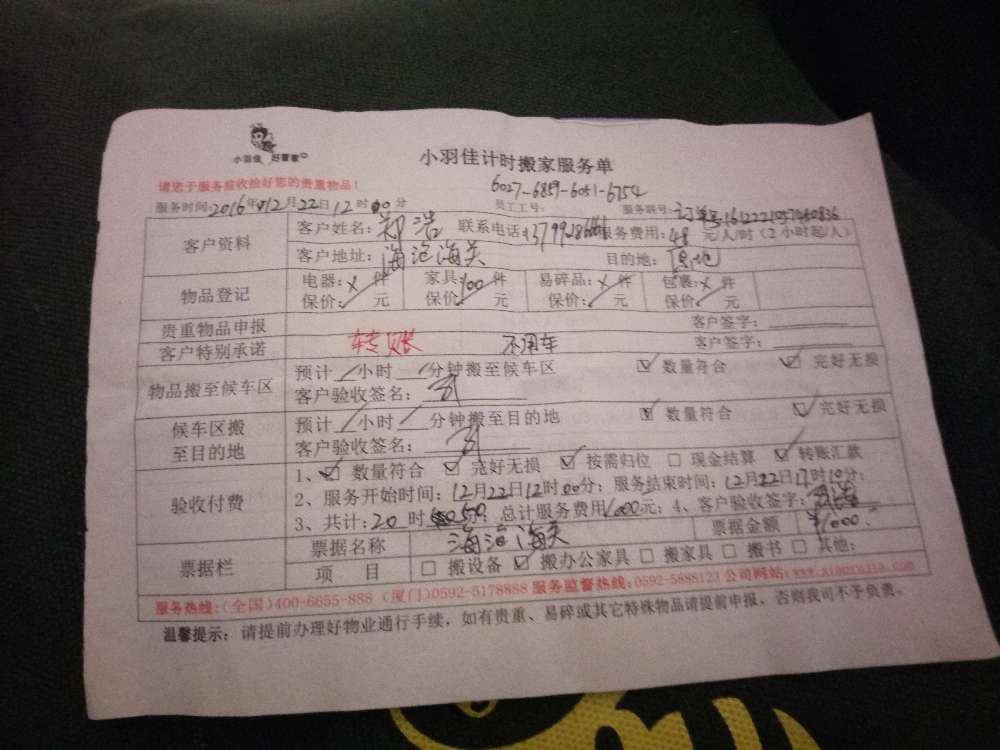 小羽佳 好管家
小羽佳计时搬家服务单
请您于服务前收捡好您的贵重物品！
6027-6859-6051-6754
服务时间：2016年12月22日12时00分 员工工号： 服务联号：订单号
客户资料 客户姓名：郑浩 联系电话： 服务费用：48元/人/时（2小时起/人）
客户地址：海沧海关 目的地：原地
物品登记 电器：×件 家具：100件 易碎品：×件 包裹：×件
保价：／元 保价：／元 保价：／元 保价：／元
贵重物品申报 客户签字：
客户特别承诺 转账 不用车 客户签字：
物品搬至候车区 预计／小时／分钟搬至候车区 ☑数量符合 ☑完好无损
客户验收签名：
候车区搬至目的地 预计／小时／分钟搬至目的地 ☑数量符合 ☑完好无损
客户验收签名：
验收付费 1、☑数量符合 ☑完好无损 ☑按需归位 □现金结算 ☑转账汇款
2、服务开始时间：12月22日12时00分；服务结束时间：12月22日17时10分；
3、共计：20时50分；总计服务费用1000元；4、客户验收签字：
票据栏 票据名称 海沧海关 票据金额 ¥1000
项 目 □搬设备 ☑搬办公家具 □搬家具 □搬书 □其他：
服务热线：（全国）400-6655-888（厦门）0592-5178888 服务监督热线：0592-5888123 公司网站：
温馨提示：请提前办理好物业通行手续，如有贵重、易碎或其它特殊物品请提前申报，否则我司不予负责。